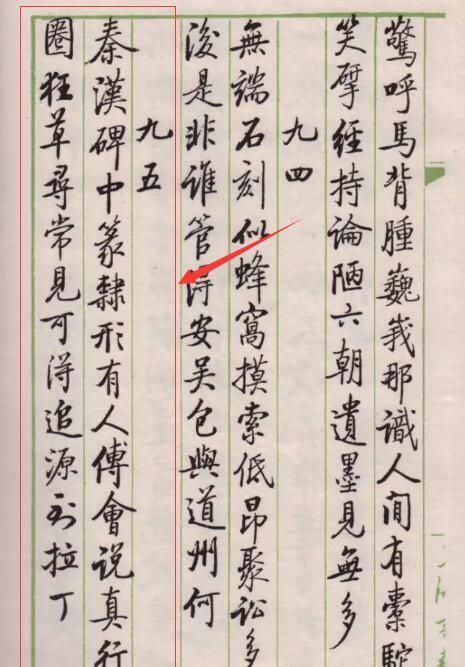 驚呼馬背腫巍峩那識人间有橐駝
笑孹經持論陋六朝遺墨見無多
九四
無端石刻似蜂窩摸索低昂聚訟多
後是非誰管得安吴包與道州何
九五
秦漢碑中篆隸形有人傅會说真行
圈狂草尋常見可得追源到拉丁